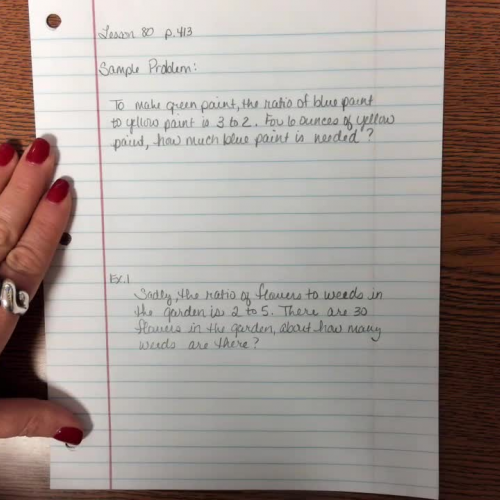 Lesson 80 p.413
Sample Problem:
To make green paint, the ratio of blue paint
to yellow paint is 3 to 2. For 6 ounces of yellow
paint, how much blue paint is needed?
Ex.1
Sadly, the ratio of flowers to weeds in
the garden is 2 to 5. There are 30
flowers in the garden, about how many
weeds are there?